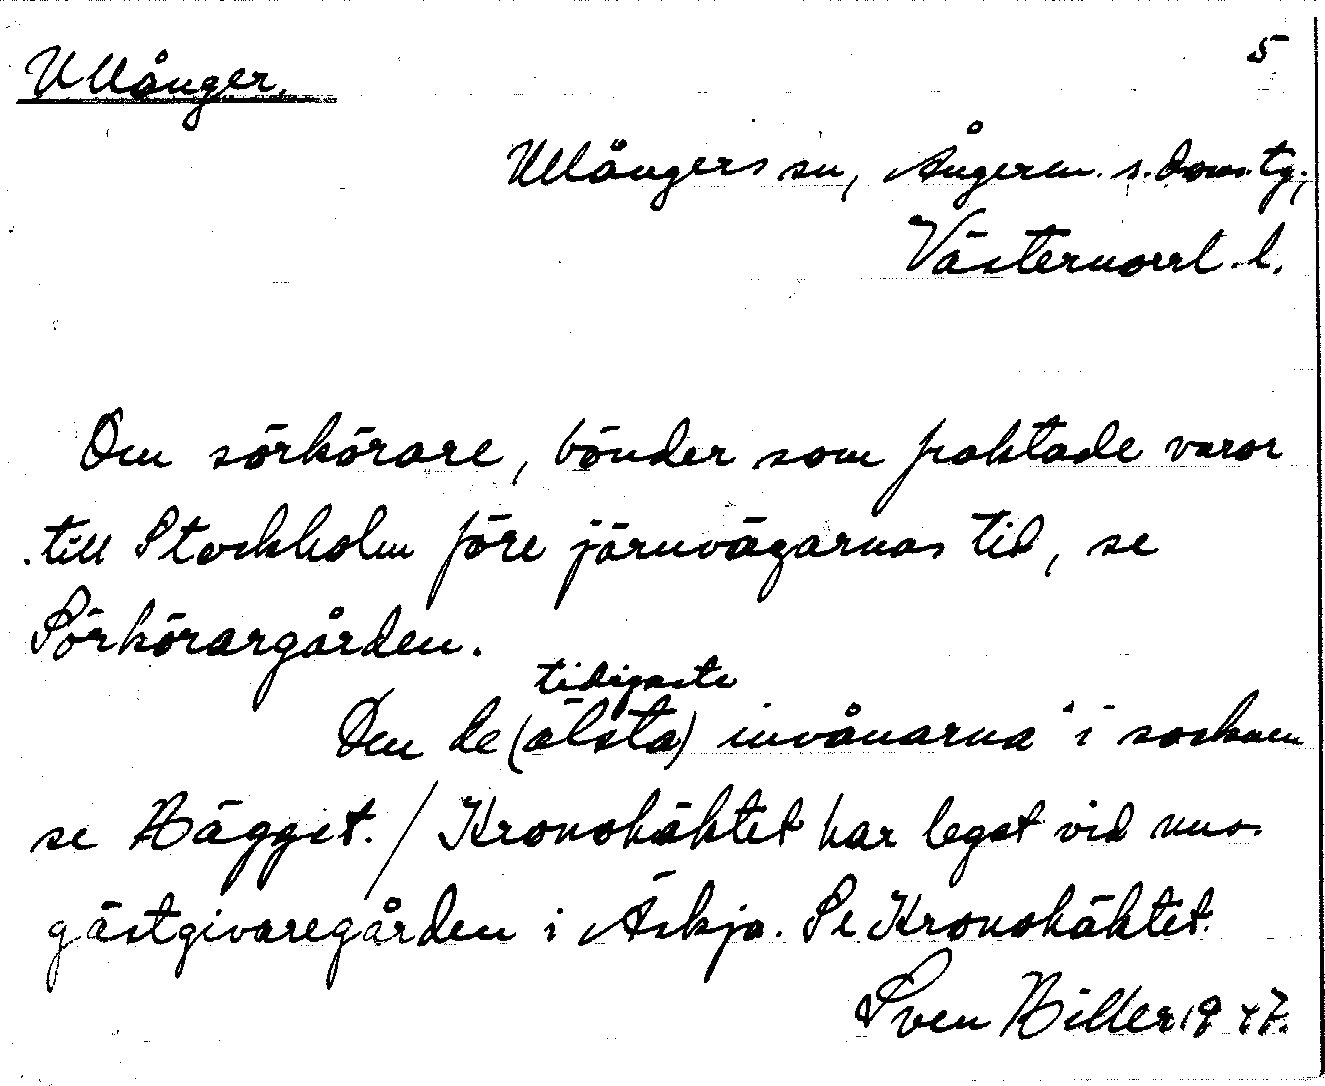 Ullånger.
5
Ullångers sn, Ångerm. s. doms. tg.,
Västernorrl. l.
Om sörkörare, bönder som fraktade varor
till Stockholm före järnvägarnas tid, se
Sörkörargården.
tidigaste
Om de (älsta) invånarna i socknen
se Häggst. / Kronohäktet har leget vid nuv.
gästgivaregården i Äskja. Se Kronohäktet.
Sven Hiller 1947.